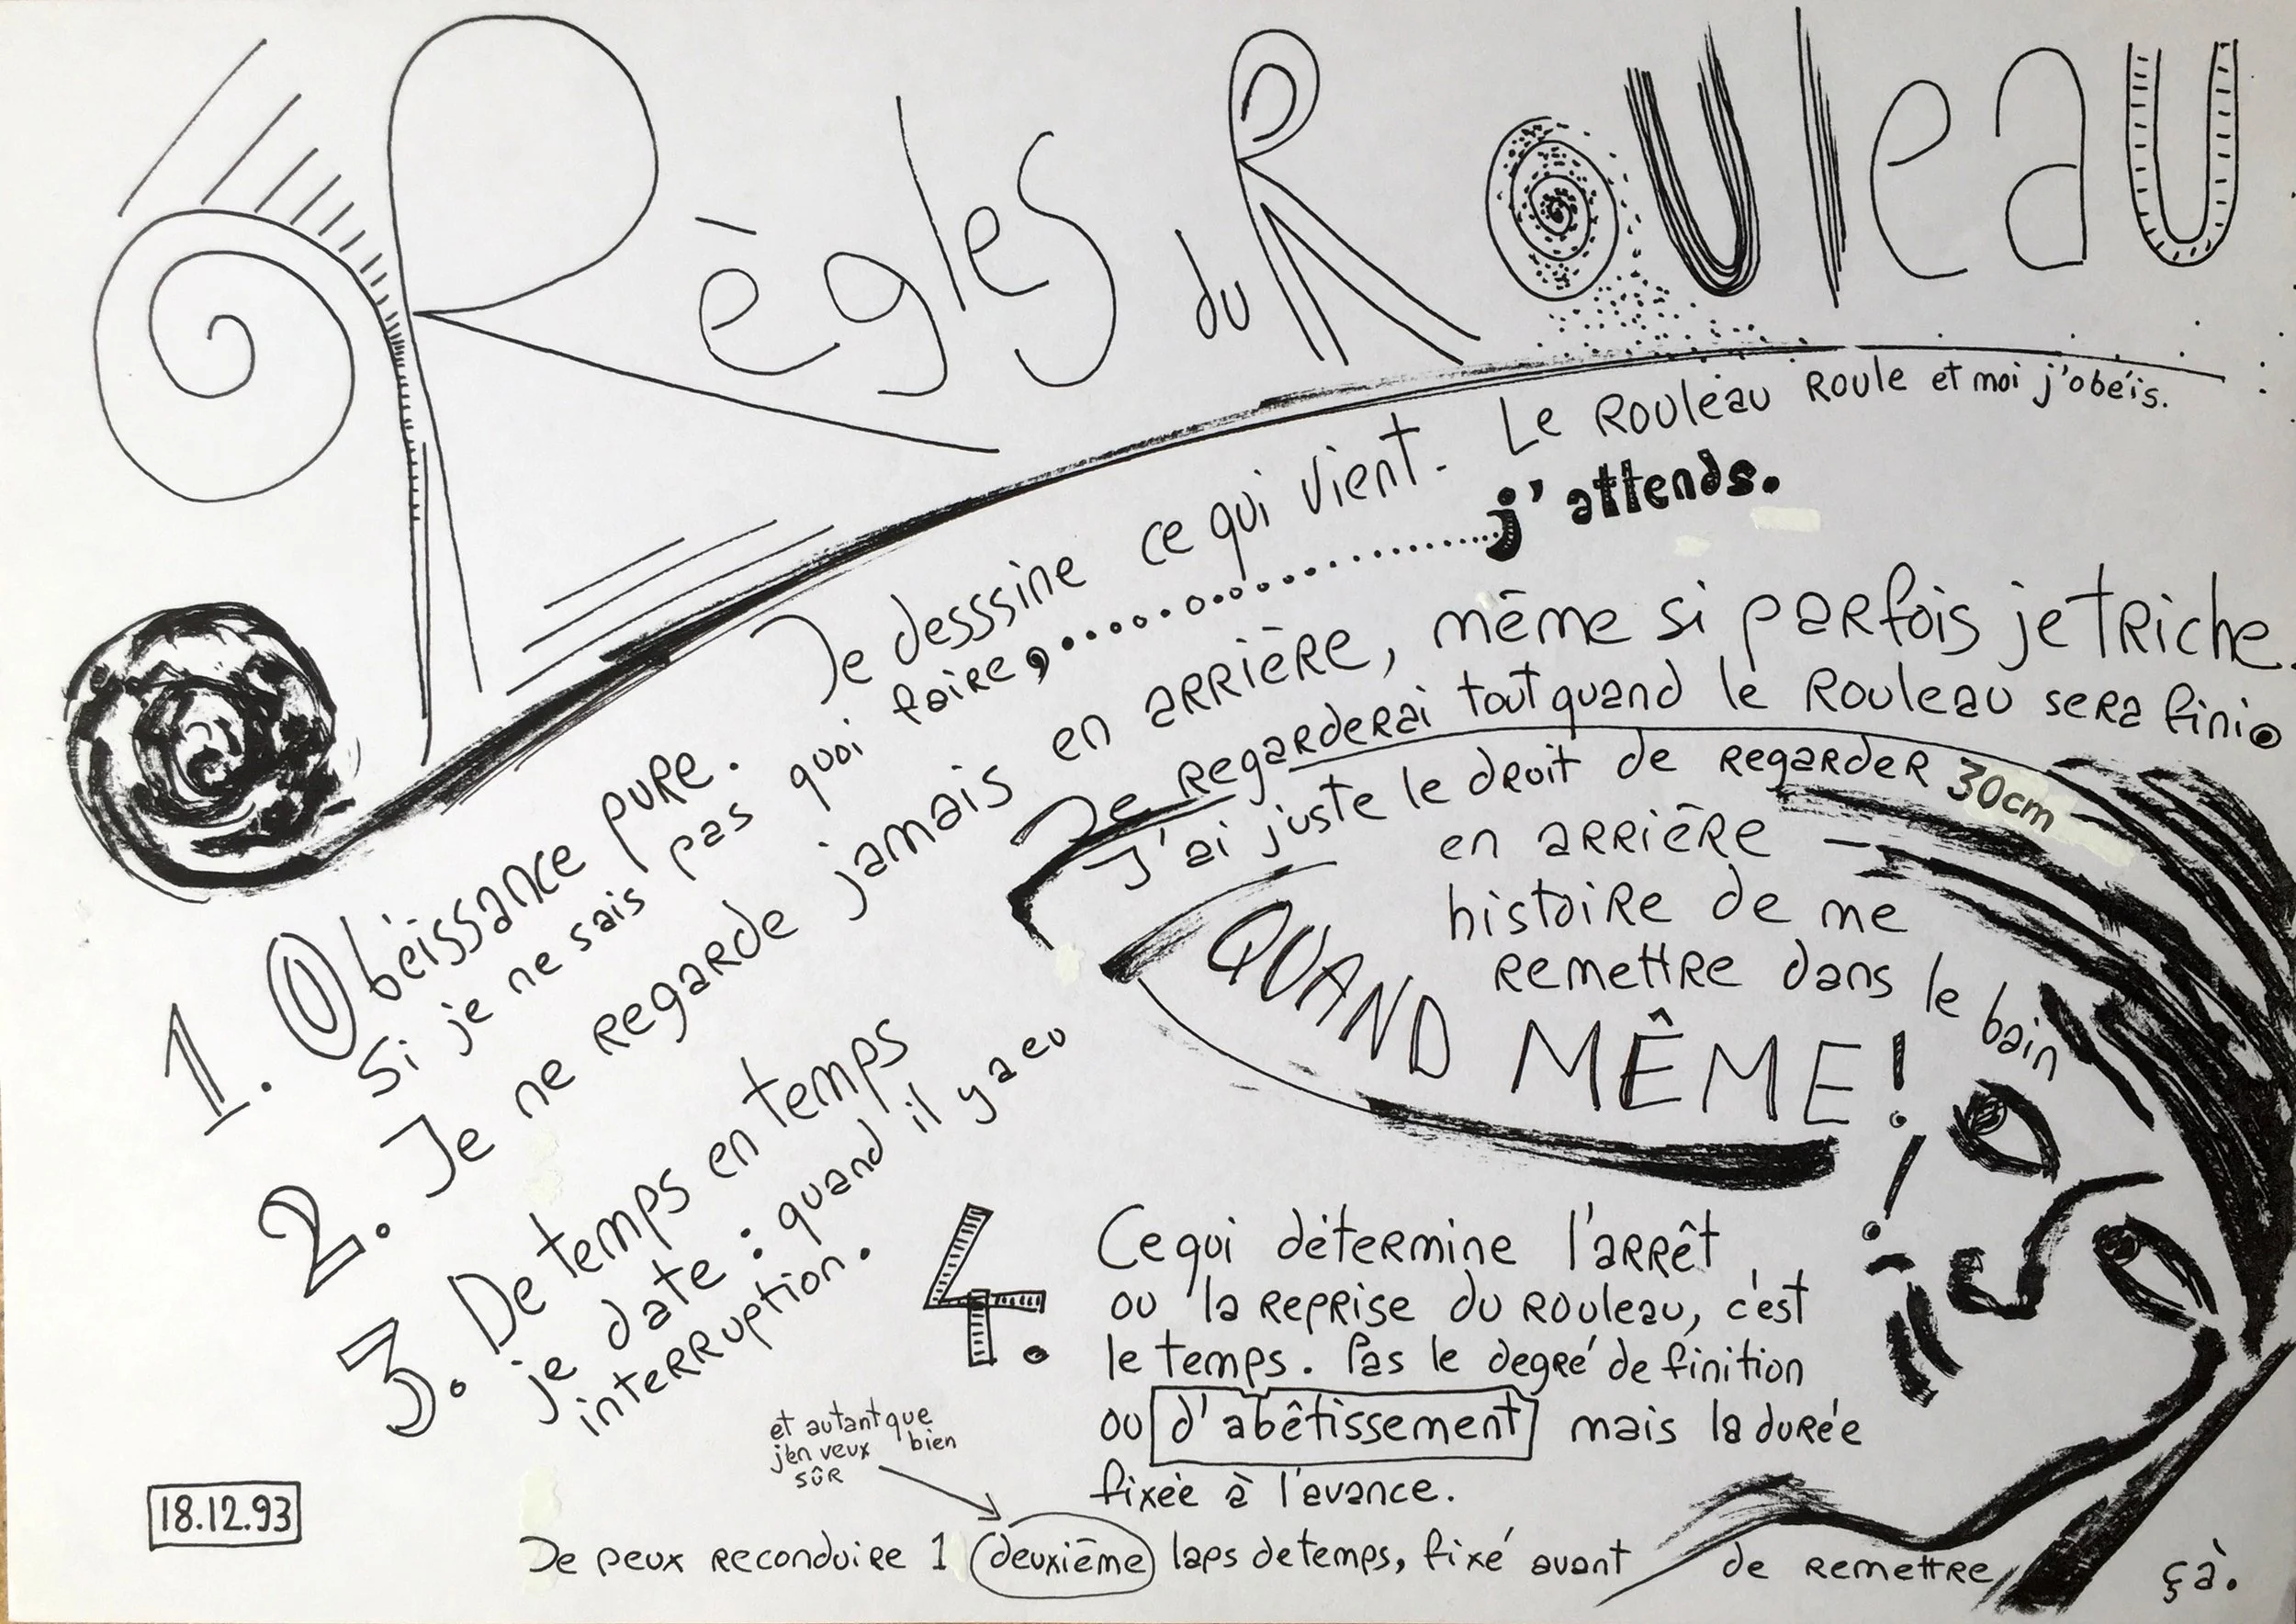 Règles du Rouleau
1. Obéissance pure. Je desssine ce qui vient. Le Rouleau Roule et moi j'obéis.
Si je ne sais pas quoi faire, j'attends.
2. Je ne regarde jamais en arrière, même si parfois je triche.
Je regarderai tout quand le Rouleau sera fini.
J'ai juste le droit de regarder 30cm
en arrière
histoire de me
remettre dans le bain
QUAND MÊME!
3. De temps en temps
je date : quand il y a eu
interruption.
4. Ce qui détermine l'arrêt
ou la reprise du rouleau, c'est
le temps. Pas le degré de finition
ou d'abêtissement mais la durée
fixée à l'avance.
et autant que
j'en veux bien
sûr
Je peux reconduire 1 deuxième laps de temps, fixé avant de remettre çà.
18.12.93